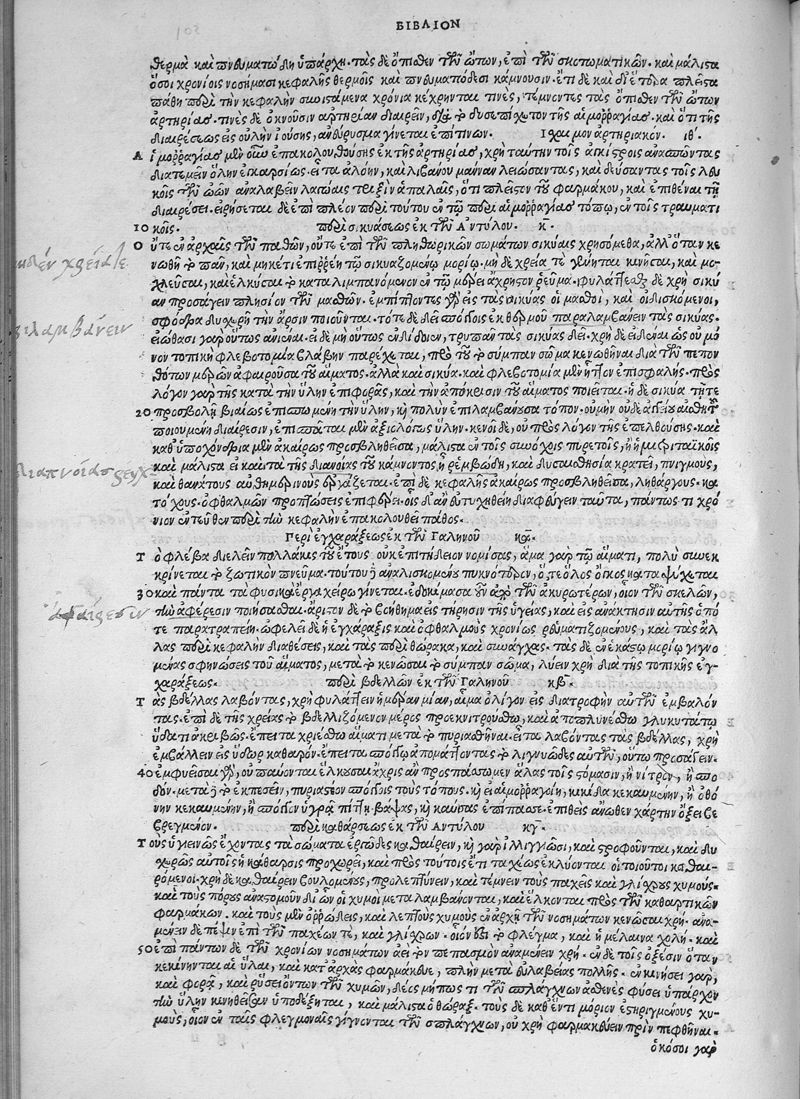 ΒΙΒΛΙΟΝ
θερμὰ καὶ πνευματώδη ὑπάρχη. τὰς δὲ ὄπιθεν τῶν ὤτων, ἐπὶ τῶν σκοτωματικῶν. καὶ μάλιστα
ὅσοι χρονίοις νοσήμασι κεφαλῆς θερμοῖς καὶ πνευματώδεσι κάμνουσιν. ἔτι δὲ καὶ δι' ἕτερα πλεῖστα
πάθη περὶ τὴν κεφαλὴν συνιστάμενα χρόνια κέχρηνται τινὲς, τέμνοντες τὰς ὄπιθεν τῶν ὤτων
ἀρτηρίας. τινὲς δὲ ὀκνοῦσιν ἀρτηρίαν διαιρεῖν, διὰ τὸ δυσεπίσχετον τῆς αἱμορραγίας. καὶ ὅτι τῆς
διαιρέσεως εἰς οὐλὴν ἰούσης, ἀνεύρυσμα γίνεται ἐπὶ τινων. Ἴσχαιμον ἀρτηριακόν. ιθ'.
Α ἱμορραγίας μὲν οὖν ἐπακολουθούσης ἐκ τῆς ἀρτηρίας, χρὴ ταύτην τοῖς ἀγκίστροις ἀνασπῶντας
διατεμεῖν ὅλην ἐγκαρσίως. εἶτα ἀλόην, καὶ λιβάνου μάνναν λειώσαντας, καὶ δεύσαντας τοῖς λευ
κοῖς τῶν ὠῶν ἀναλαβεῖν λαγώαις θριξὶν ἁπαλαῖς, ὅτι πλεῖστον τοῦ φαρμάκου, καὶ ἐπιθεῖναι τῇ
διαιρέσει. εἰρήσεται δὲ ἐπὶ πλέον περὶ τούτου ἐν τῷ περὶ αἱμορραγίας τόπῳ, ἐν τοῖς τραυματι
10 κοῖς. περὶ σικυάσεως ἐκ τῶν Ἀντύλου. κ.
Ο ὔτε ἐν ἀρχαῖς τῶν παθῶν, οὔτε ἐπὶ τῶν πληθωρικῶν σωμάτων σικύαις χρησόμεθα, ἀλλ' ὅταν κε
νωθῇ τὸ πᾶν, καὶ μηκέτι ἐπιρρέῃ τῷ σικυαζομένῳ μορίῳ. μὴ δὲ χρεία τε γένηται κινῆσαι, καὶ μο-
χλεῦσαι, καὶ ἑλκύσαι τὸ καταλιμπανόμενον ἐν τῷ μέρει ἄχρηστον ῥεῦμα. φυλάττεσθαι δὲ χρὴ σικύ
αν προσάγειν πλησίον τῶν μασθῶν. ἐμπίπτοντες γὰρ εἰς τὰς σικύας οἱ μασθοὶ, καὶ διοιδισκόμενοι,
σφόδρα δυσχερῆ τὴν ἄρσιν ποιοῦνται. τότε δὲ δεῖ σπόγγοις ἐκ θερμοῦ παραλαμβάνειν τὰς σικύας.
εἰώθασι γὰρ οὕτως ἀνιέναι. εἰ δὲ μὴ οὕτως ἐνδίδοιεν, τρυπᾶν τὰς σικύας δεῖ. χρὴ δὲ εἰδέναι ὡς οὐ μό
νον τοπικὴ φλεβοτομία βλάβην παρέχεται, πρὸ τοῦ τὸ σύμπαν σῶμα κενωθῆναι διὰ τῶν πεπον
θότων μερῶν ἀφαιροῦσα τοῦ αἵματος. ἀλλὰ καὶ σικύα. καὶ φλεβοτομία μὲν ἧττον ἐπισφαλής. πρὸς
λόγον γὰρ τῆς κατὰ τὴν ὕλην ἐπιφορᾶς, καὶ τὴν ἀπόκρισιν τοῦ αἵματος ποιεῖται. ἡ δὲ σικύα τῆ τε
20 προσβολῇ βιαίως ἐπισπωμένη τὴν ὕλην, καὶ πολὺν ἐπιλαμβάνουσα τόπον. οὐ μὴν οὐδὲ ἀξίαν αἰσθητὴν
ποιουμένη διαίρεσιν, ἐπισπᾶται μὲν ἀξιολόγως ὕλην. κενοῖ δὲ, οὐ πρὸς λόγον τῆς ἐπελθούσης. καὶ
καθ' ὑποχόνδρια μὲν ἀκαίρως προσβληθεῖσα, μάλιστα ἐν τοῖς συνόχοις πυρετοῖς, ἢ ἡμιτριταϊκοῖς
καὶ μάλιστα εἰ καὶ τὰ τῆς διανοίας τοῦ κάμνοντος ᾖ ῥεμβώδη, καὶ δυσαισθησία κρατεῖ, πνιγμοὺς,
καὶ θανάτους αὐθημερινοὺς ἐργάζεται. ἐπὶ δὲ κεφαλῆς ἀκαίρως προσβληθεῖσα, ληθάργους. κα
τόχους. ὀφθαλμῶν προπτώσεις ἐπιφέρει. οἷς δ' ἂν εὐτυχηθείη διαφυγεῖν ταῦτα, πάντως τι χρό
νιον ἐντεῦθεν περὶ τὴν κεφαλὴν ἐπακολουθεῖ πάθος.
Περὶ ἐγχαράξεως ἐκ τῶν Γαληνοῦ κα.
Τ ὸ φλέβα διελεῖν πολλάκις τοῦ ἔτους οὐκ ἐπιτήδειον νομίσας, ἅμα γὰρ τῷ αἵματι, πολὺ συνεκ
κρίνεται τὸ ζωτικὸν πνεῦμα. τούτου δὲ ἀναλισκομένου πυκνότερον, ὅ τε ὅλος ὄγκος καταψύχεται
30 καὶ πάντα τὰ φυσικὰ ἔργα χείρω γίνεται. ἐδοκίμασα οὖν ἀπὸ τῶν ἀκυρωτέρων, οἷον τῶν σκελῶν,
τὴν ἀφέρεσιν ποιήσασθαι. ἄριστον δὲ τὸ βοήθημα εἰς τήρησιν τῆς ὑγείας, καὶ εἰς ἀνάκτησιν αὐτῆς ὁπό
τε παρατραπείη. ὠφελεῖ δὲ ἡ ἐγχάραξις καὶ ὀφθαλμοὺς χρονίως ῥευματιζομένους, καὶ τὰς ἄλ
λας περὶ κεφαλὴν διαθέσεις, καὶ τὰς περὶ θώρακα, καὶ συνάγχας. τὰς ἐν ἑκάστῳ μερίῳ γινο
μένας σφηνώσεις τοῦ αἵματος, μετὰ τὸ κενῶσαι τὸ σύμπαν σῶμα, λύειν χρὴ διὰ τῆς τοπικῆς ἐγ-
χαράξεως. περὶ βδελλῶν ἐκ τῶν Γαληνοῦ κβ.
Τ ὰς βδέλλας λαβόντας, χρὴ φυλάττειν ἡμέραν μίαν, αἷμα ὀλίγον εἰς διατροφὴν αὐτῶν ἐμβαλόν
τας. ἐπὶ δὲ τῆς χρείας τὸ βδελλιζόμενον μέρος προεκνιτρούσθω, καὶ ἀποπλυνέσθω γλυκυτάτῳ
ὕδατι ἀκριβῶς. ἔπειτα χριέσθω αἵματι μετὰ τὸ πυριαθῆναι. εἶτα λαβόντας τὰς βδέλλας, χρὴ
ἐμβάλλειν εἰς ὕδωρ καθαρόν. ἔπειτα σπόγγῳ ἀπομάττοντας τὸ λιγνυῶδες αὐτῶν, οὕτω προσάγειν.
40 ἐμφεῖσαι γὰρ, οὐ παύονται ἕλκουσαι ἄχρις ἂν προσπάσωμεν ἅλας τοῖς στόμασιν, ἢ νίτρον, ἢ σπο
δόν. μετὰ δὲ τὸ ἐκπεσεῖν, πυριατέον σπόγγοις τοὺς τόπους. καὶ εἰ αἱμορραγοίη, κικίδα κεκαυμένην, ἢ ὀθό
νην κεκαυμένην, ἢ σπόγγον ὑγρᾷ πίττῃ βάψας, καὶ καύσας ἐπίπασσε. ἐπιθεὶς ἄνωθεν χάρτην ὄξει βε
βρεγμένον. περὶ καθάρσεως ἐκ τῶν Ἀντύλου κγ.
Τ οὺς ὑγιεινῶς ἔχοντας τὰ σώματα ἐργῶδες καθαίρειν, καὶ γὰρ ἰλιγγιῶσι, καὶ στροφοῦνται, καὶ δυ
χερῶς αὐτοῖς ἡ κάθαρσις προχωρεῖ, καὶ πρὸς τούτοις ἔτι ταχέως ἐκλύονται οἱ τοιοῦτοι καθαι-
ρόμενοι. χρὴ δὲ καθαίρειν βουλομένους, προλεπτύνειν, καὶ τέμνειν τοὺς παχεῖς καὶ γλίσχρους χυμούς.
καὶ τοὺς πόρους ἀναστομοῦν δι' ὧν οἱ χυμοὶ μεταλαμβάνονται, καὶ ἕλκονται πρὸς τῶν καθαρτικῶν
φαρμάκων. καὶ τοὺς μὲν ὀρρώδεις, καὶ λεπτοὺς χυμοὺς ἐν ἀρχῇ τῶν νοσημάτων κενῶσαι χρή. ἀνα-
μένειν δὲ πέψιν ἐπὶ τῶν παχέων τὲ, καὶ γλίσχρων. οἷόν ἐστι τὸ φλέγμα, καὶ ἡ μέλαινα χολή. καὶ
50 ἐπὶ πάντων δὲ τῶν χρονίων νοσημάτων ἀεὶ τὸν πεπασμὸν ἀναμένειν χρή. ἐν δὲ τοῖς ὀξέσιν ὅταν
κεκίνηνται αἱ ὗλαι, καὶ κατ' ἀρχὰς φαρμακεύειν, πλὴν μετὰ εὐλαβείας πολλῆς. ἐν κινήσει γὰρ,
καὶ φορᾷ, καὶ ῥύσει ὄντων τῶν χυμῶν, δέος μήπως τι τῶν σπλάγχνων ἀσθενὲς φύσει ὑπάρχον
τὴν ὕλην κινηθεῖσαν ὑποδέξηται, καὶ μάλιστα ὁ θώραξ. τοὺς δὲ καθ' ἕν τι μόριον ἐστηριγμένους χυ-
μοὺς, οἷον ἐν ταῖς φλεγμοναῖς γίγνονται τῶν σπλάγχνων, οὐ χρὴ φαρμακεύειν πρὶν πεφθῆναι.
ὁκόσοι γὰρ